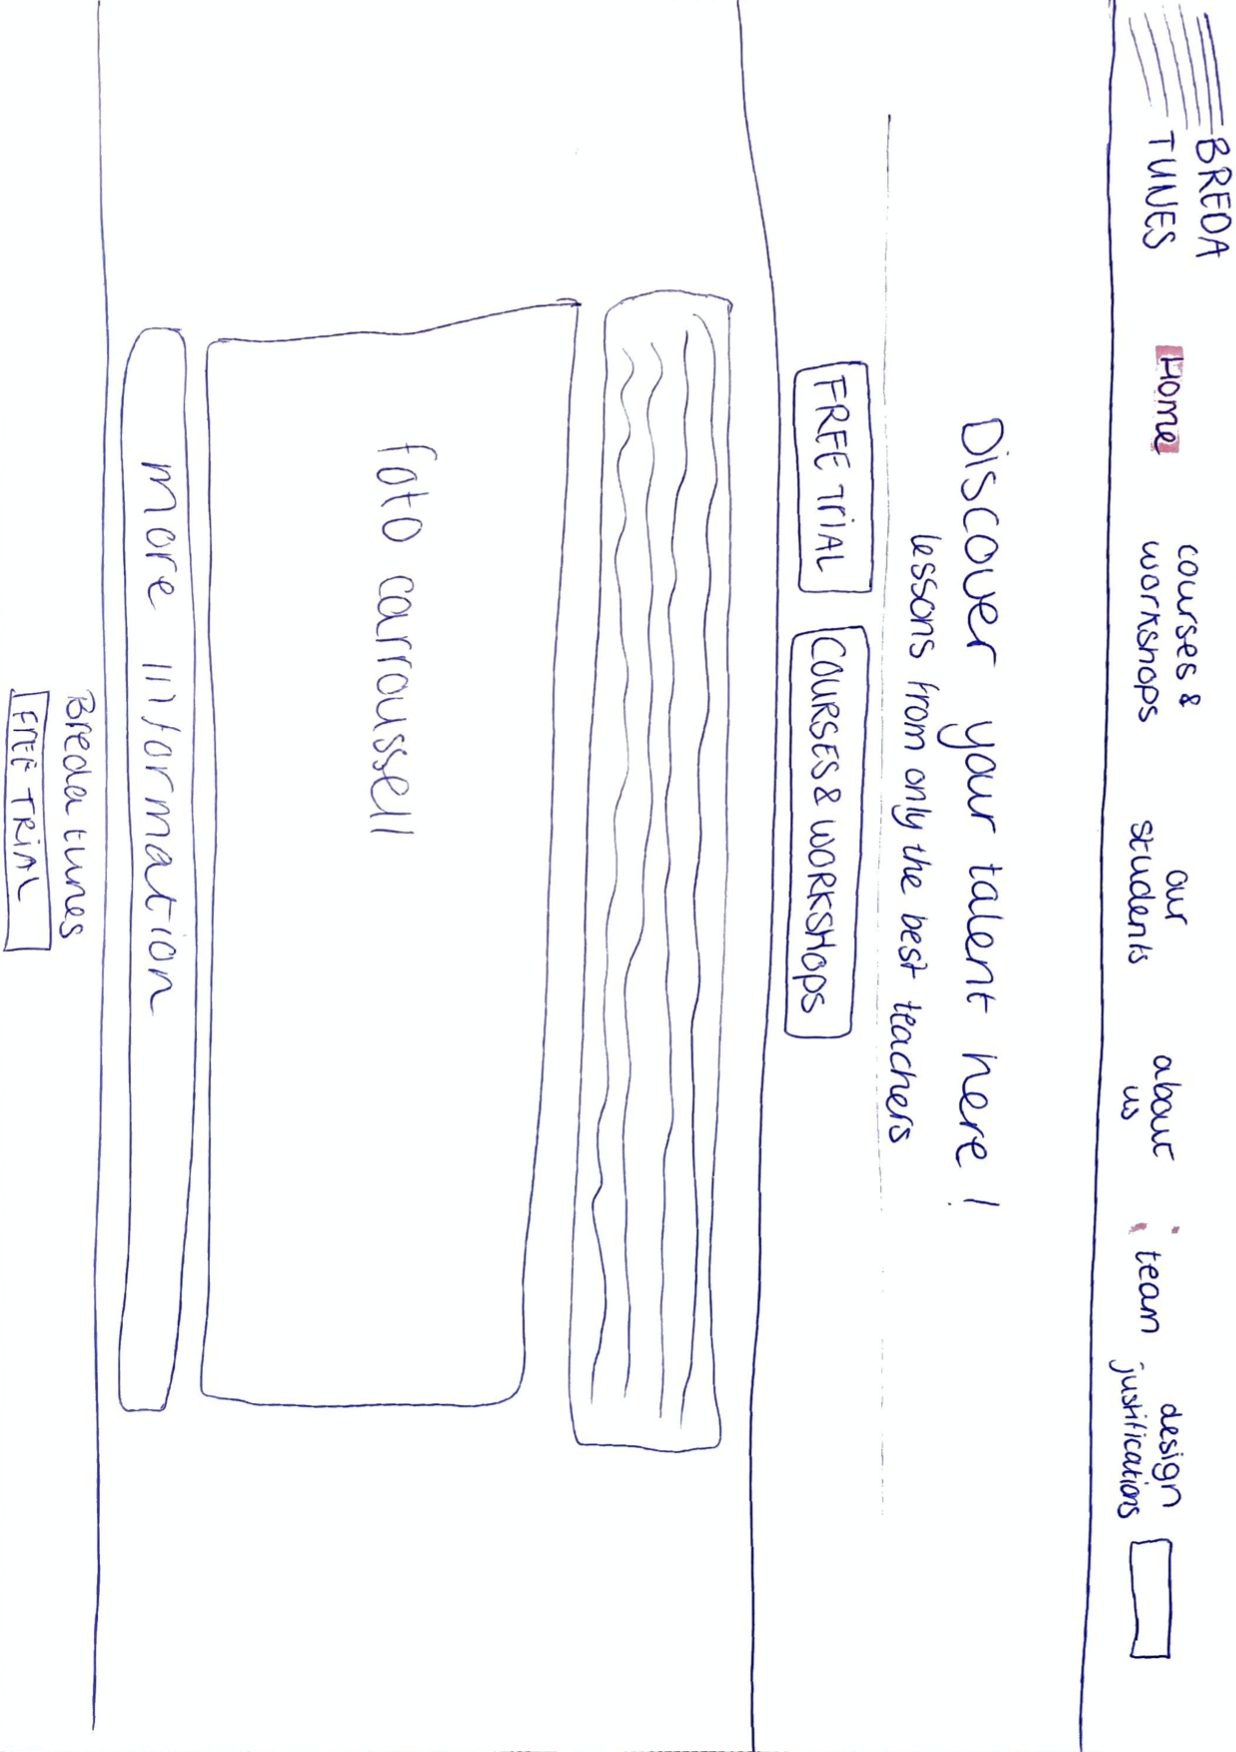 BREDA
TUNES
Home
courses &
workshops
our
students
about
us
team
design
justifications
Discover your talent here!
lessons from only the best teachers
FREE TriAL
COURSES & WORKSHOps
foto carroussell
more information
Breda tunes
FREE TRIAL